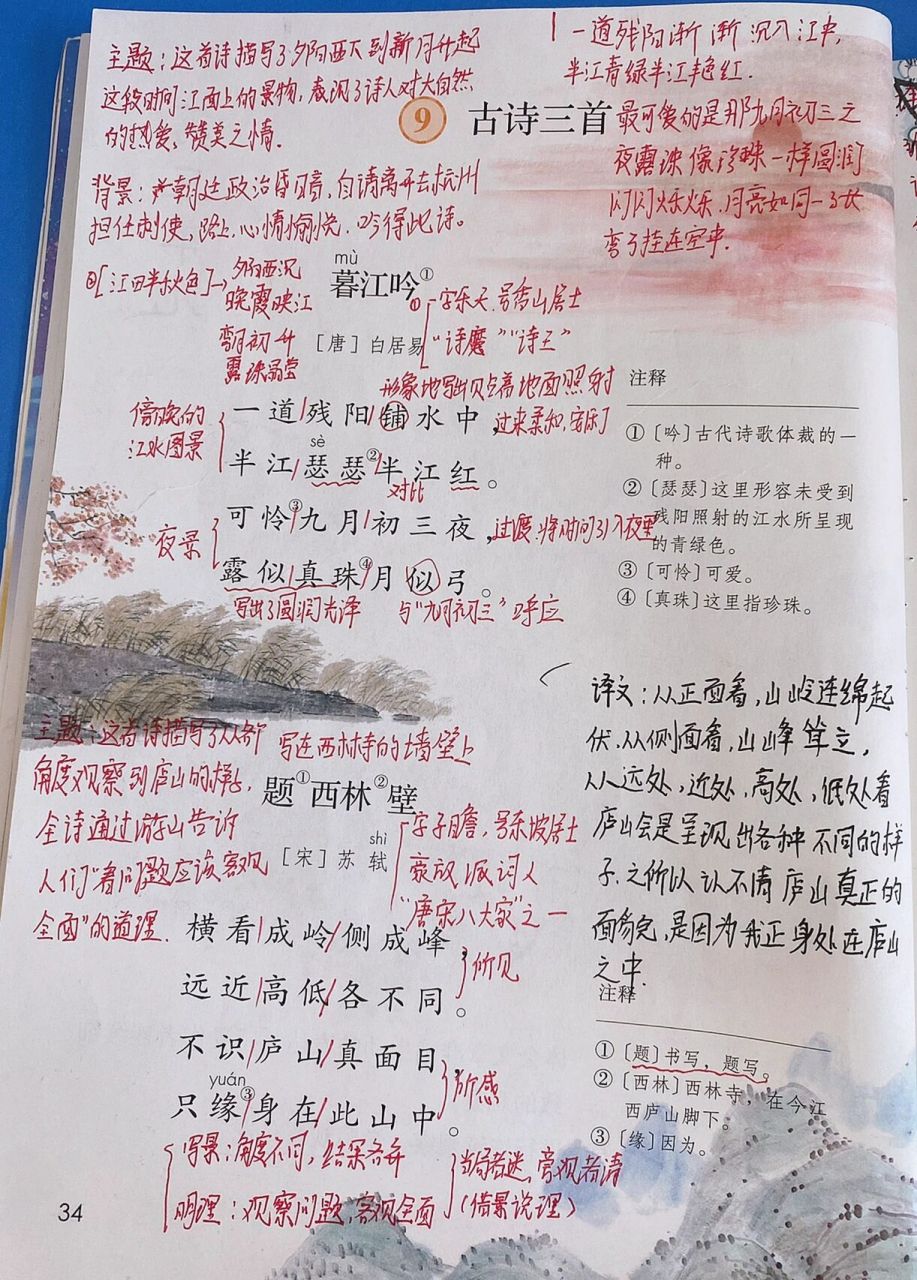 主题：这首诗描写了夕阳西下到新月升起
这段时间江面上的景物，表现了诗人对大自然
的热爱，赞美之情.
一道残阳渐渐沉入江中,
半江青绿半江艳红.
最可爱的是那九月初三之
夜露珠像珍珠一样圆润
闪闪烁烁.月亮如同一弓状
弯弓挂在空中.
9 古诗三首
背景：朝廷政治昏暗，自请离开去杭州
担任刺史，路上心情愉悦.吟得此诗。
mù
暮江吟①
夕阳西沉
晚霞映江
弯月初升
露珠晶莹
①字乐天.号香山居士
"诗魔""诗王"
［唐］白居易
形象地写出贴着地面照射
过来柔和,安乐了
傍晚的
江水图景
一道/残阳/铺水中，
sè
半江/瑟瑟②/半江红。
对比
夜景
可怜③/九月/初三夜，
过渡.将时间引入夜里
露似/真珠④/月似弓。
写出了圆润光泽
与"九月初三"呼应
注释
①〔吟〕古代诗歌体裁的一
种。
②〔瑟瑟〕这里形容未受到
残阳照射的江水所呈现
的青绿色。
③〔可怜〕可爱。
④〔真珠〕这里指珍珠。
主题：这首诗描写了从各个
角度观察到庐山的样子,
全诗通过游山告诉
人们"看问题应该客观
全面"的道理.
写在西林寺的墙壁上
题①西林②壁
shì
［宋］苏轼
字子瞻，号东坡居士
豪放派词人
"唐宋八大家"之一
横看/成岭/侧成峰，
远近/高低/各不同。
所见
不识/庐山/真面目，
yuán
只缘③/身在/此山中。
所感
写景：角度不同，结果各异
明理：观察问题,客观全面
当局者迷，旁观者清
（借景说理）
译文：从正面看，山岭连绵起
伏.从侧面看，山峰耸立，
从远处，近处，高处，低处看
庐山会是呈现出各种不同的样
子.之所以认不清庐山真正的
面貌，是因为我正身处在庐山
之中.
注释
①〔题〕书写，题写。
②〔西林〕西林寺，在今江
西庐山脚下。
③〔缘〕因为。
34